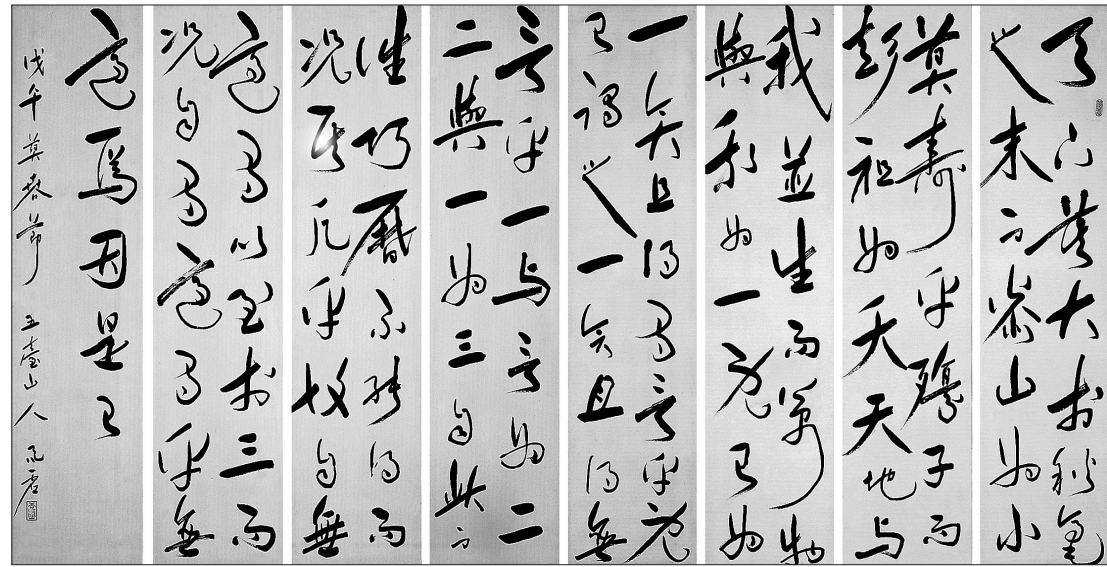 天下莫大於秋毫
之末而泰山為小
莫壽乎殤子而
彭祖為夭天地与
我並生而萬物
與我為一既已為
一矣且得有言乎既
已謂之一矣且得無
言乎一与言為二
二與一為三自此而
往巧曆不能得而
況其凡乎故自無
適有以至於三而
況自有適有乎無
適焉因是已
戊午莫春節 五臺山人